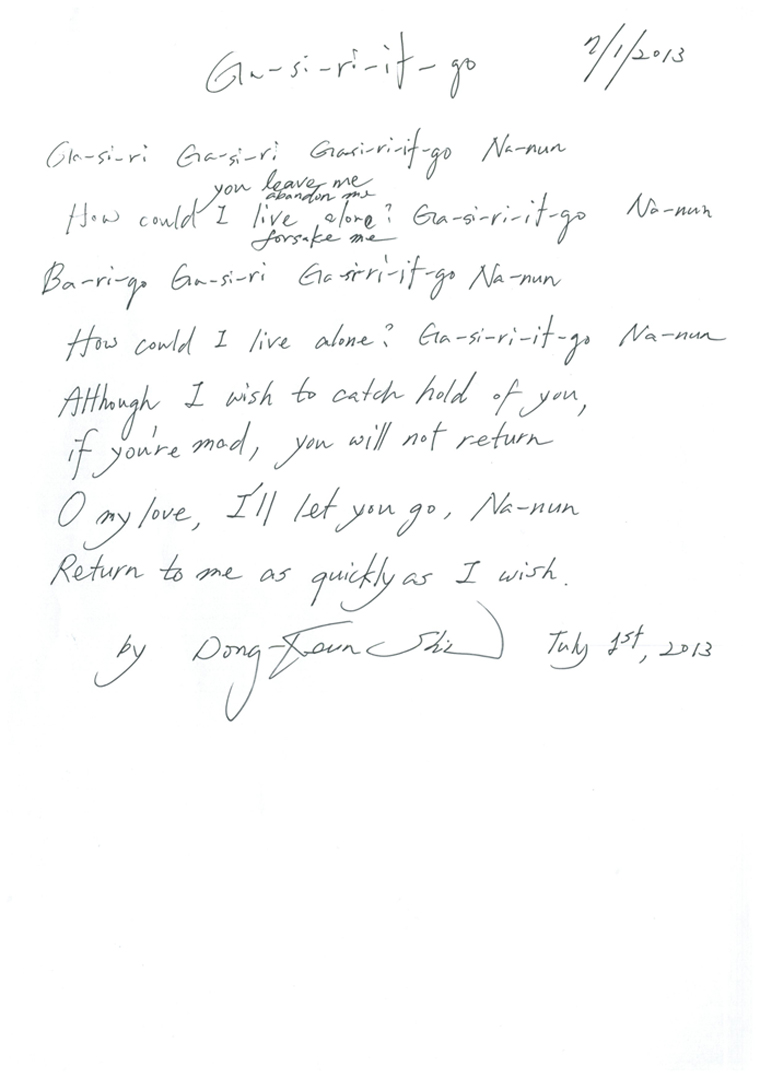 Ga-si-ri-it-go 7/1/2013
Ga-si-ri Ga-si-ri Gasi-ri-it-go Na-nun
you leave me
abandon me
How could I live alone? Ga-si-ri-it-go Na-nun
forsake me
Ba-ri-go Ga-si-ri Ga-si-ri-it-go Na-nun
How could I live alone? Ga-si-ri-it-go Na-nun
Although I wish to catch hold of you,
if you're mad, you will not return
O my love, I'll let you go, Na-nun
Return to me as quickly as I wish.
by Dong-Keun Shin July 1st, 2013